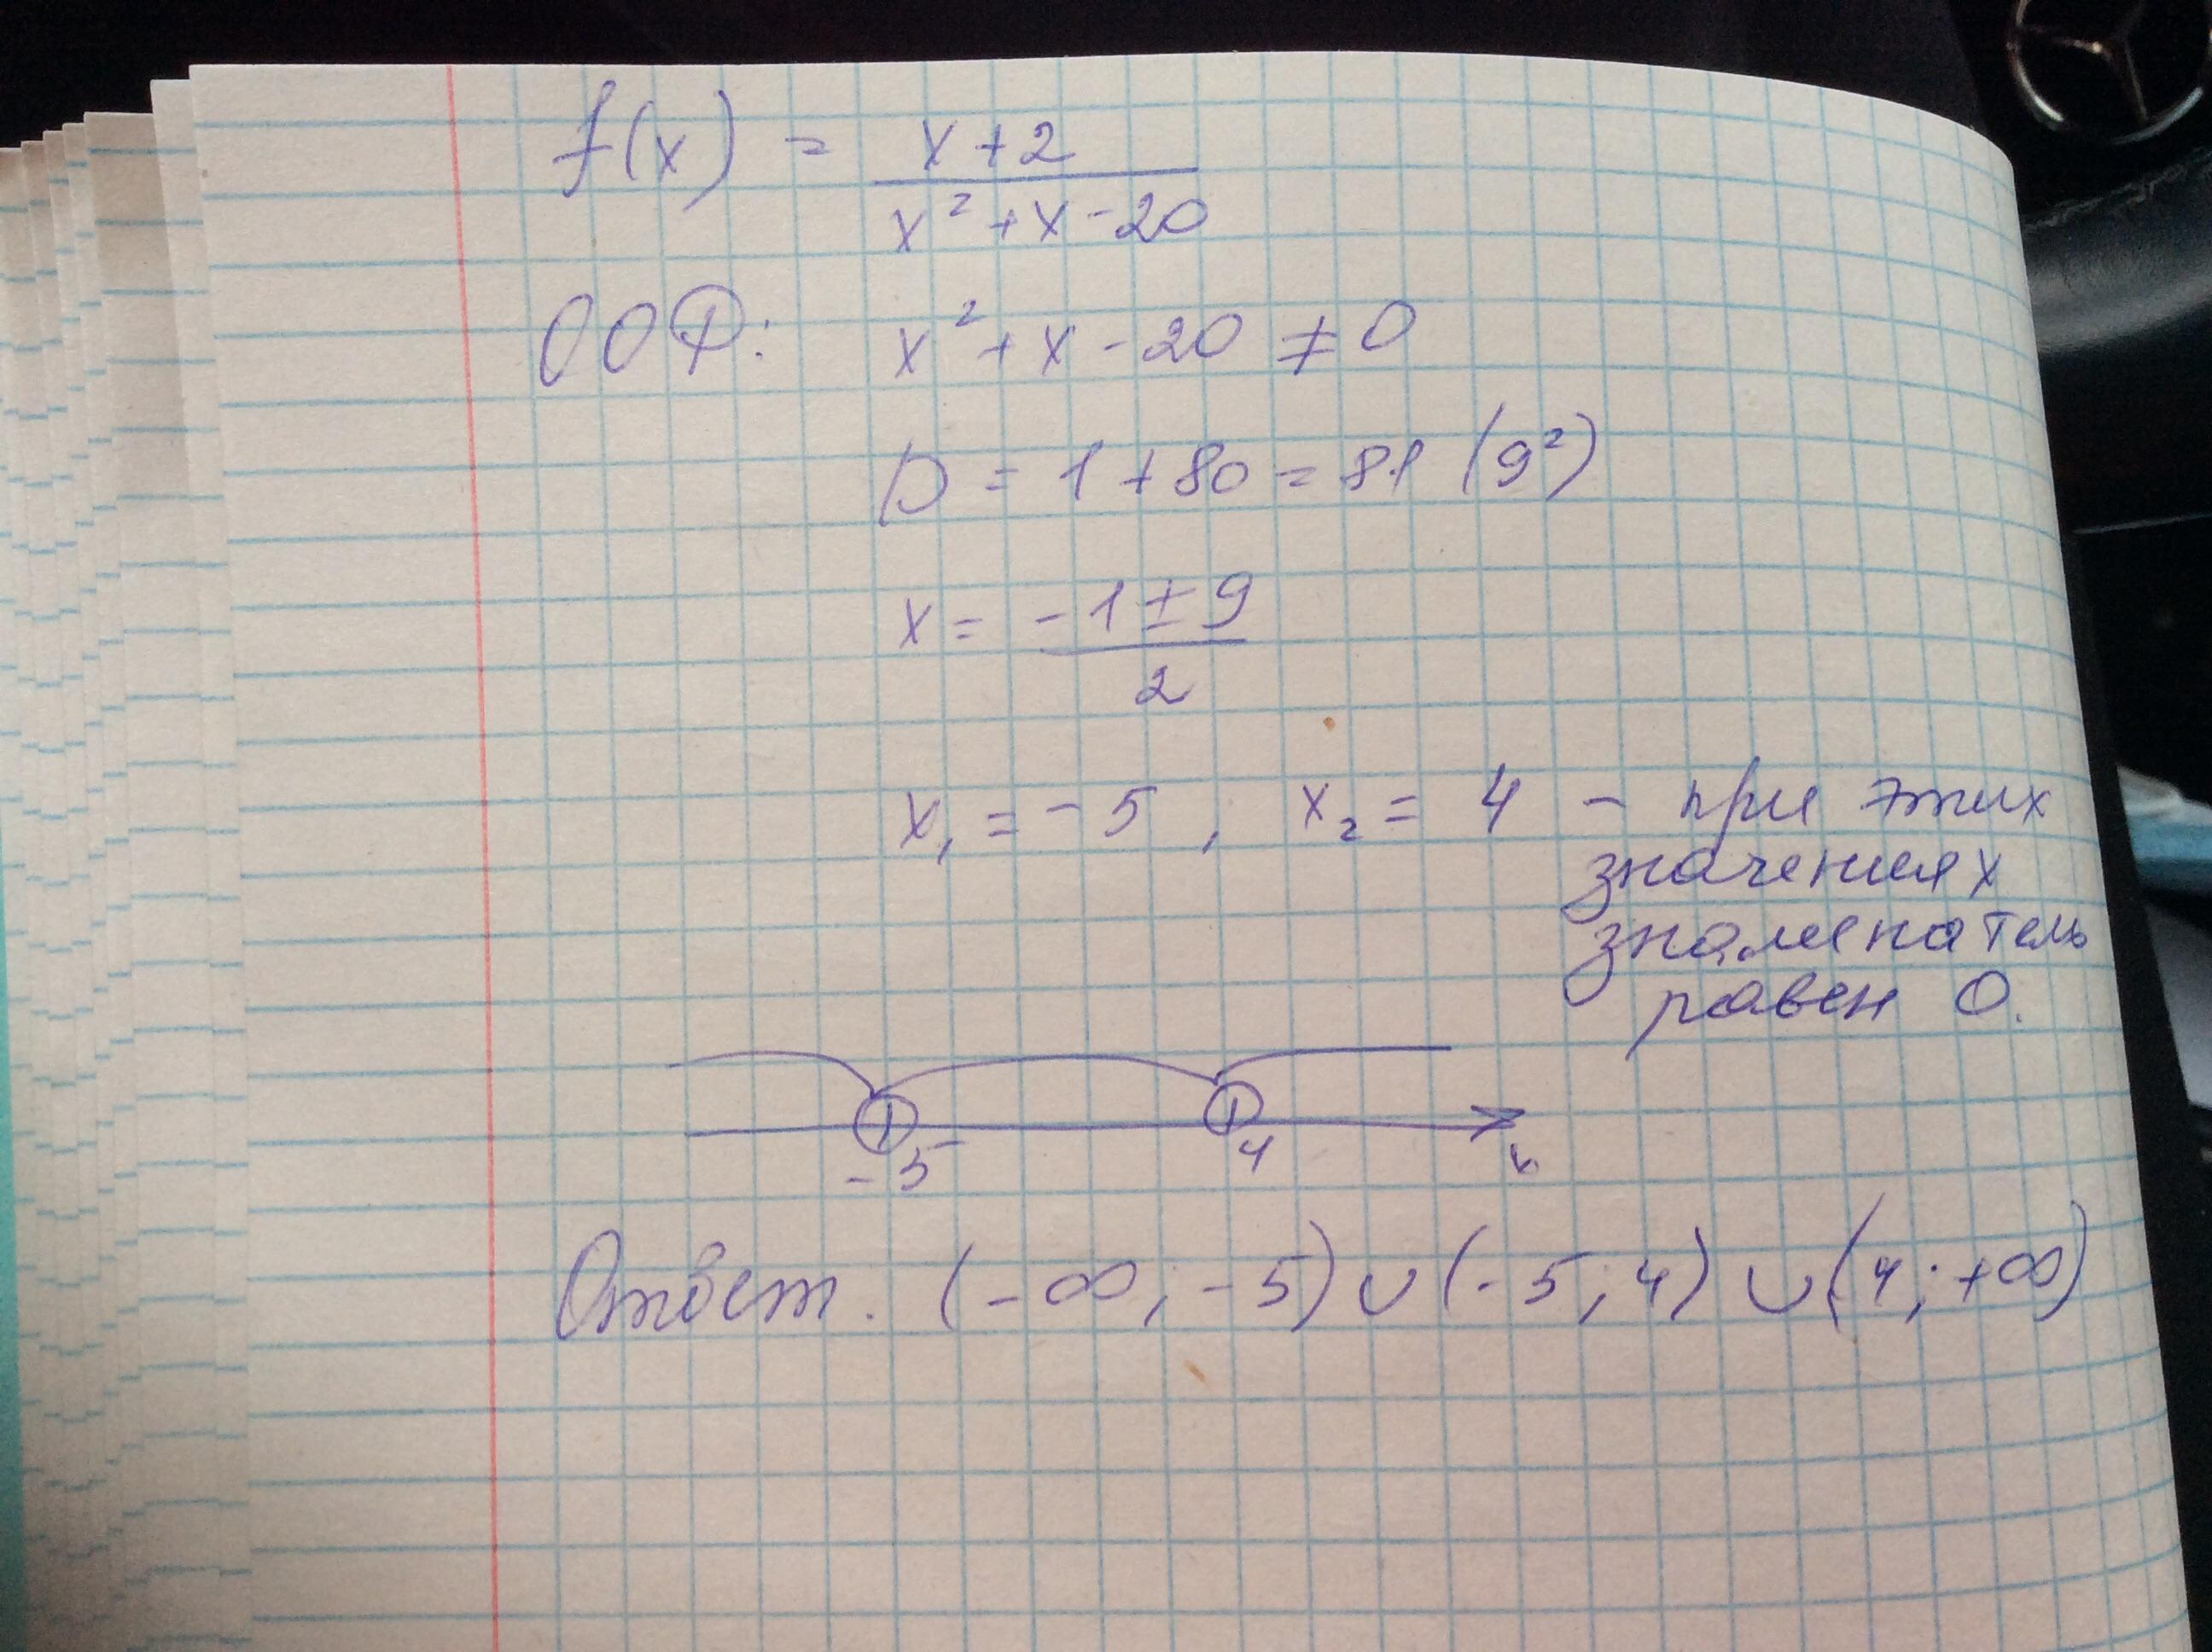 f(x) = x+2
x² + x - 20
ООФ: x² + x - 20 ≠ 0
D = 1 + 80 = 81 (9²)
x = -1 ± 9
2
x₁ = -5 , x₂ = 4 - при этих
значениях
знаменатель
равен 0.
-5 4 x
Ответ. (-∞; -5) ∪ (-5; 4) ∪ (4; +∞)